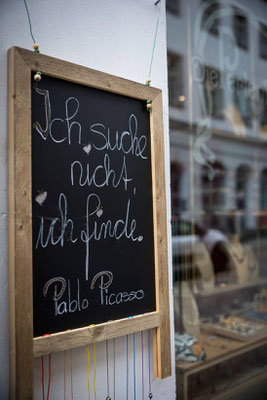 Ich suche
nicht,
ich finde.
Pablo Picasso